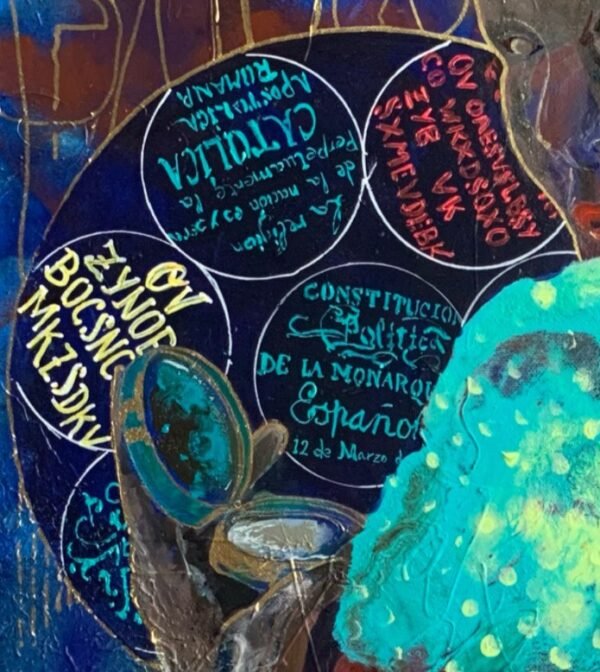 La religion
de la nacion es y será
Perpetuamente la
CATOLICA
APOSTOLICA
RUMANA
OV
CO WKXDSOXO
VK
SXMEVDEBK
OV
ZYNO
BOCSN
MKZSDKV
CONSTITUCION
Politica
DE LA MONARQU
Españo
12 de Marzo d